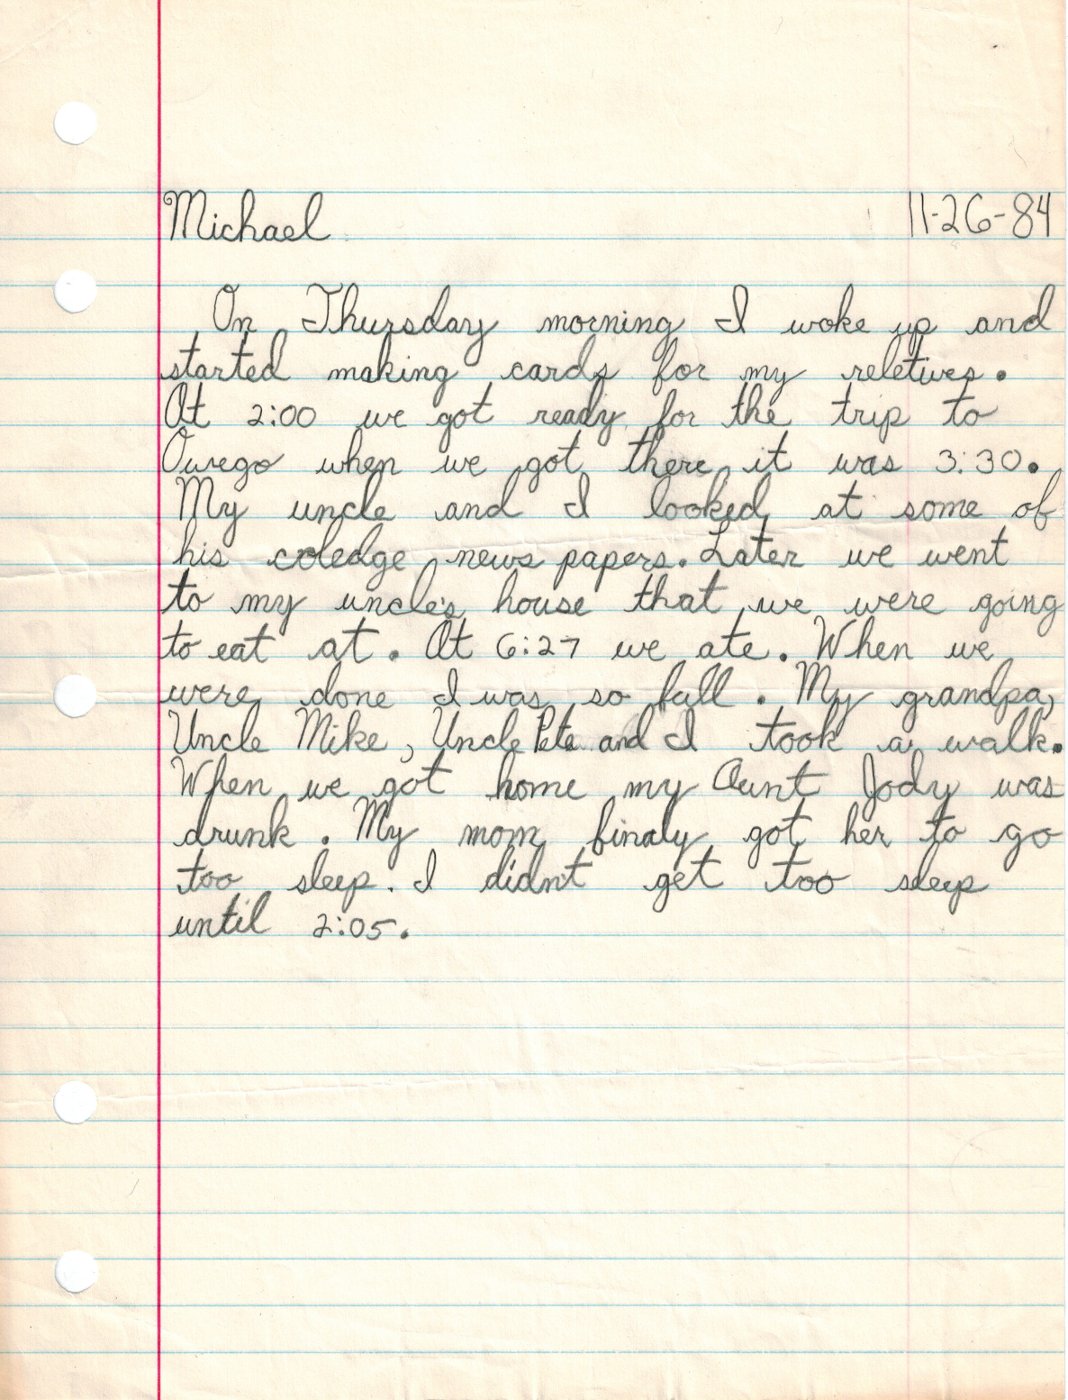 Michael 11-26-84
On Thursday morning I woke up and
started making cards for my reletives.
At 2:00 we got ready for the trip to
Owego when we got there it was 3:30.
My uncle and I looked at some of
his coledge news papers. Later we went
to my uncle's house that we were going
to eat at. At 6:27 we ate. When we
were done I was so full. My grandpa,
Uncle Mike, Uncle Pete and I took a walk.
When we got home my Aunt Jody was
drunk. My mom finaly got her to go
too sleep. I didn't get too sleep
until 2:05.